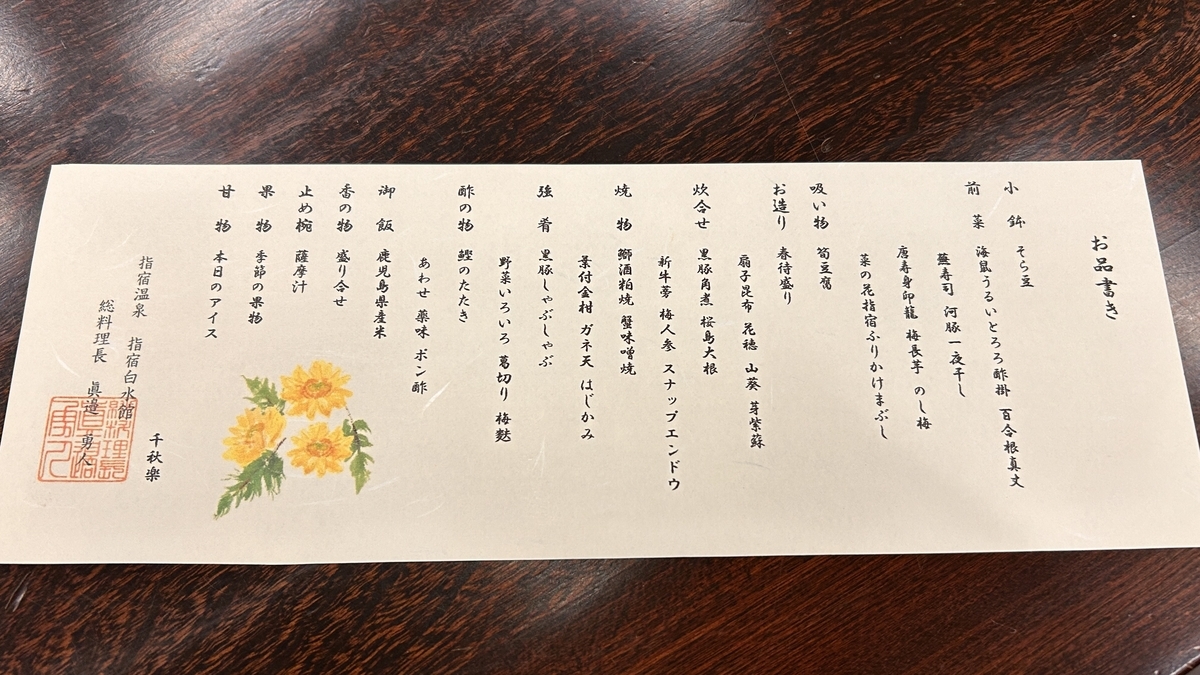 お品書き
小鉢 そら豆 百合根真丈
前菜 海鼠うるいとろろ酢掛
蕪寿司 河豚一夜干し
唐寿身印籠 梅長芋 のし梅
菜の花指宿ふりかけまぶし
吸い物 筍豆腐
お造り 春待盛り
扇子昆布 花穂 山葵 芽紫蘇
炊合せ 黒豚角煮 桜島大根
新牛蒡 梅人参 スナップエンドウ
焼物 鰤酒粕焼 蟹味噌焼
葉付金柑 ガネ天 はじかみ
強肴 黒豚しゃぶしゃぶ
野菜いろいろ 葛切り 梅麩
酢の物 鰹のたたき
あわせ 薬味 ポン酢
御飯 鹿児島県産米
香の物 盛り合せ
止め椀 薩摩汁
果物 季節の果物
甘物 本日のアイス
指宿温泉 指宿白水館 千秋楽
総料理長 眞邉 勇人